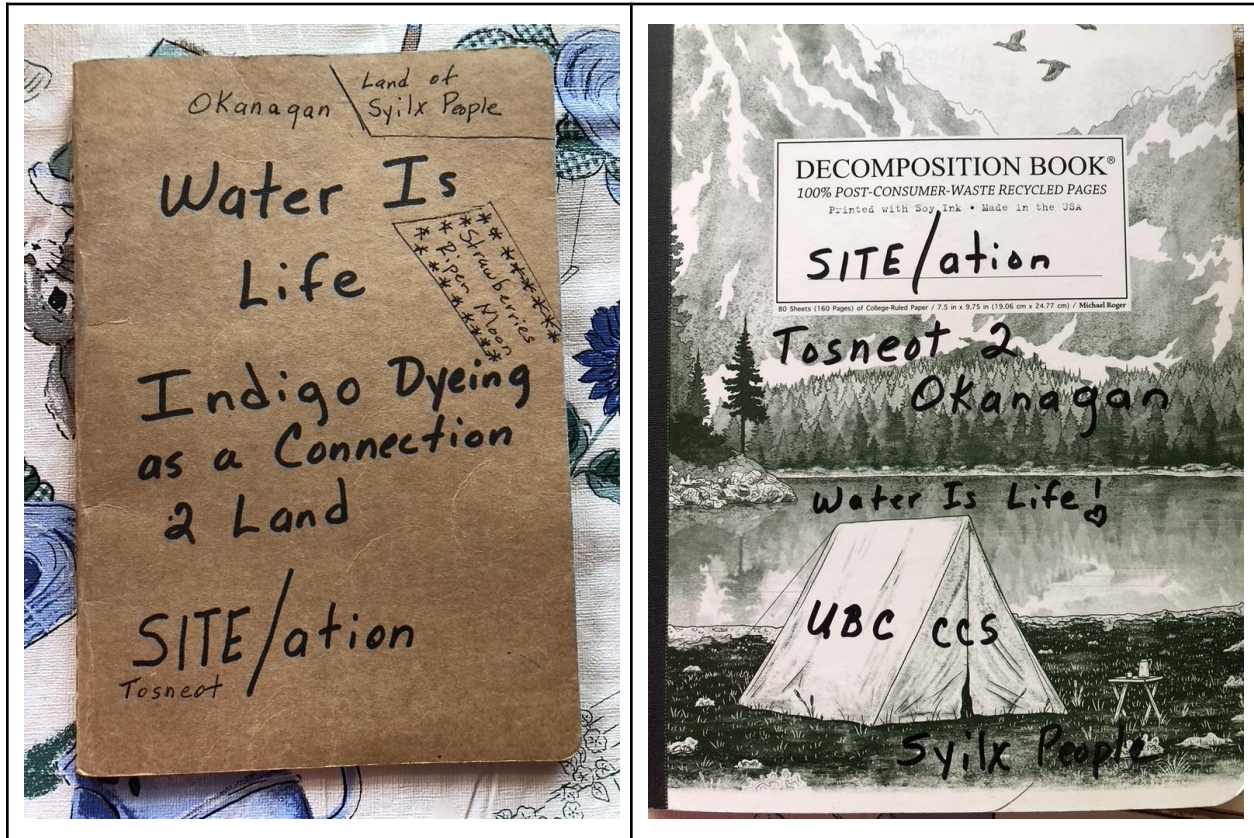 Okanagan
Land of
Syilx People
Water Is
Life
* * * * * * * * *
* Strawberries *
* * Ripen Moon *
* * * * * * * * *
Indigo Dyeing
as a Connection
2 Land
SITE/ation
Tosneot
DECOMPOSITION BOOK®
100% POST-CONSUMER-WASTE RECYCLED PAGES
Printed with Soy Ink • Made in the USA
SITE/ation
80 Sheets (160 Pages) of College-Ruled Paper / 7.5 in x 9.75 in (19.06 cm x 24.77 cm) / Michael Roger
Tosneot 2
Okanagan
Water Is Life!
UBC CCS
Syilx People